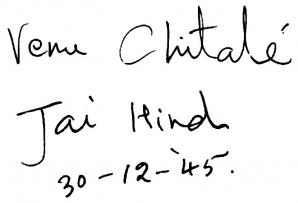 Venu Chitalé
Jai Hind
30-12-'45.